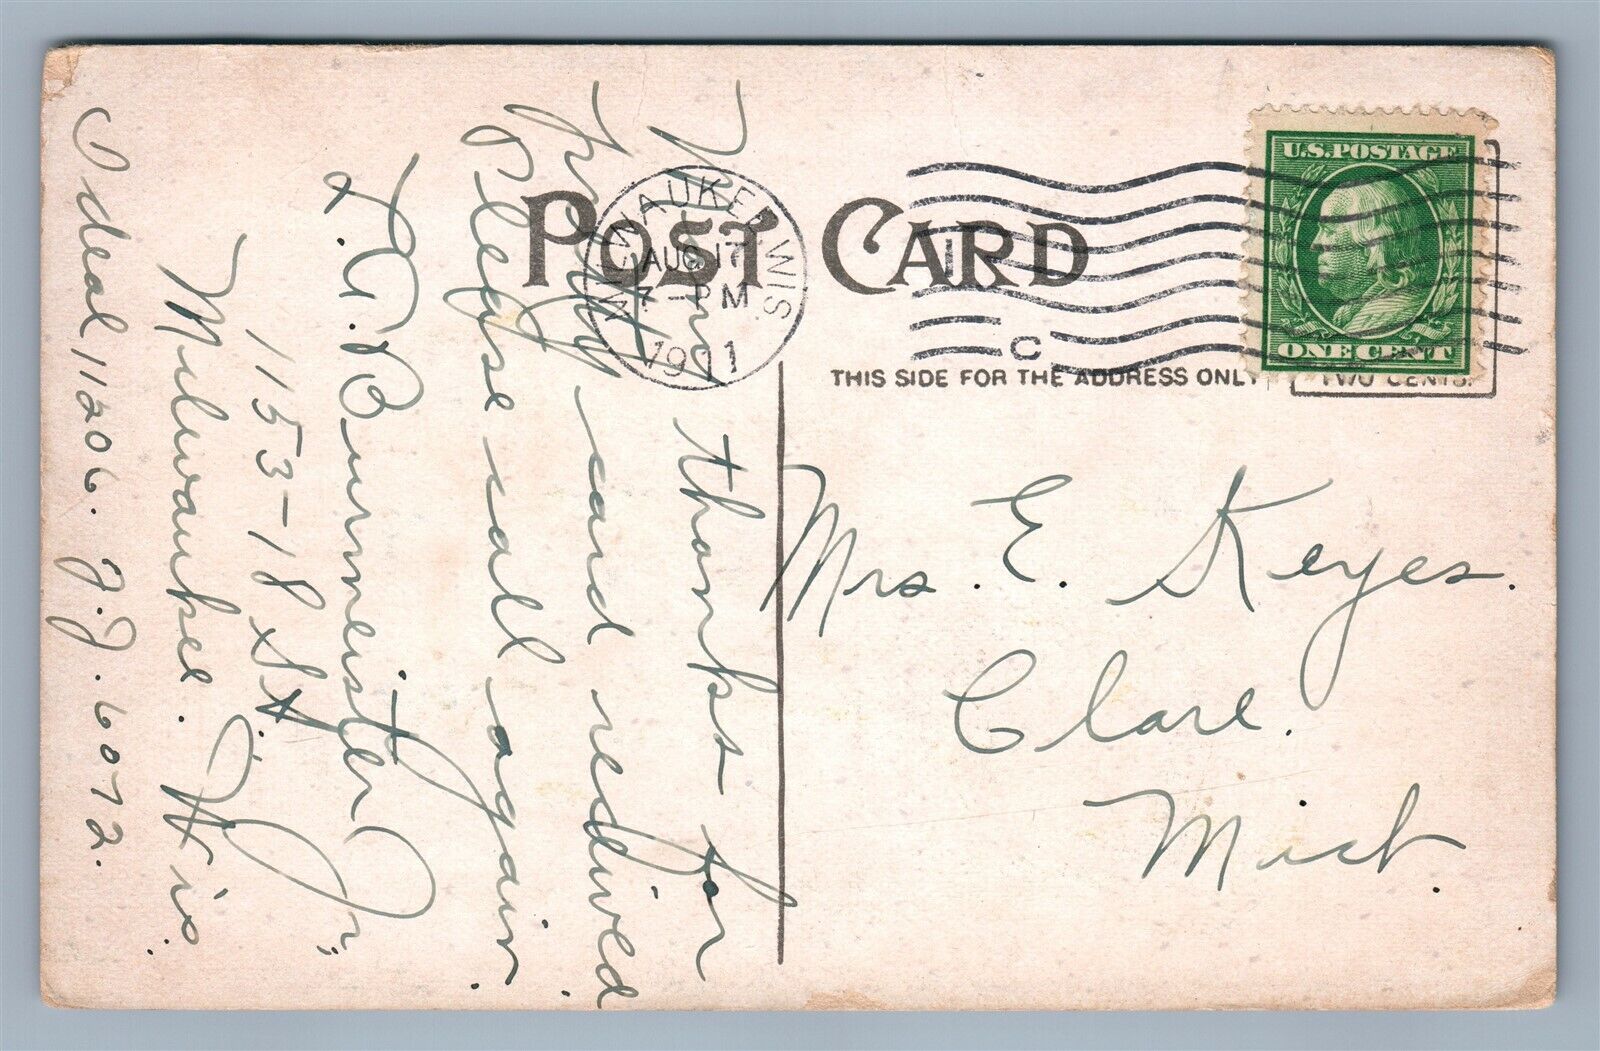 POST CARD
MILWAUKEE, WIS.
AUG 17
7 - PM
1911
C
THIS SIDE FOR THE ADDRESS ONLY
U.S. POSTAGE
ONE CENT
TWO CENTS.
Mrs. E. Keyes.
Clare.
Mich.
Many thanks for
pretty card received
Please call again.
Burmeister Jr.
1153-18 St.
Milwaukee. Wis.
Ideal 11206. J.J. 6072.